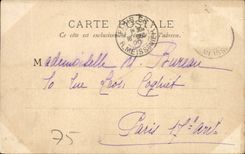 CARTE POSTALE
Ce côté est exclusivement réservé à l'adresse.
R. MEISSONIER
Mademoiselle M. Bureau
10 Rue Léon Cogniet
Paris 17e Arrt
75